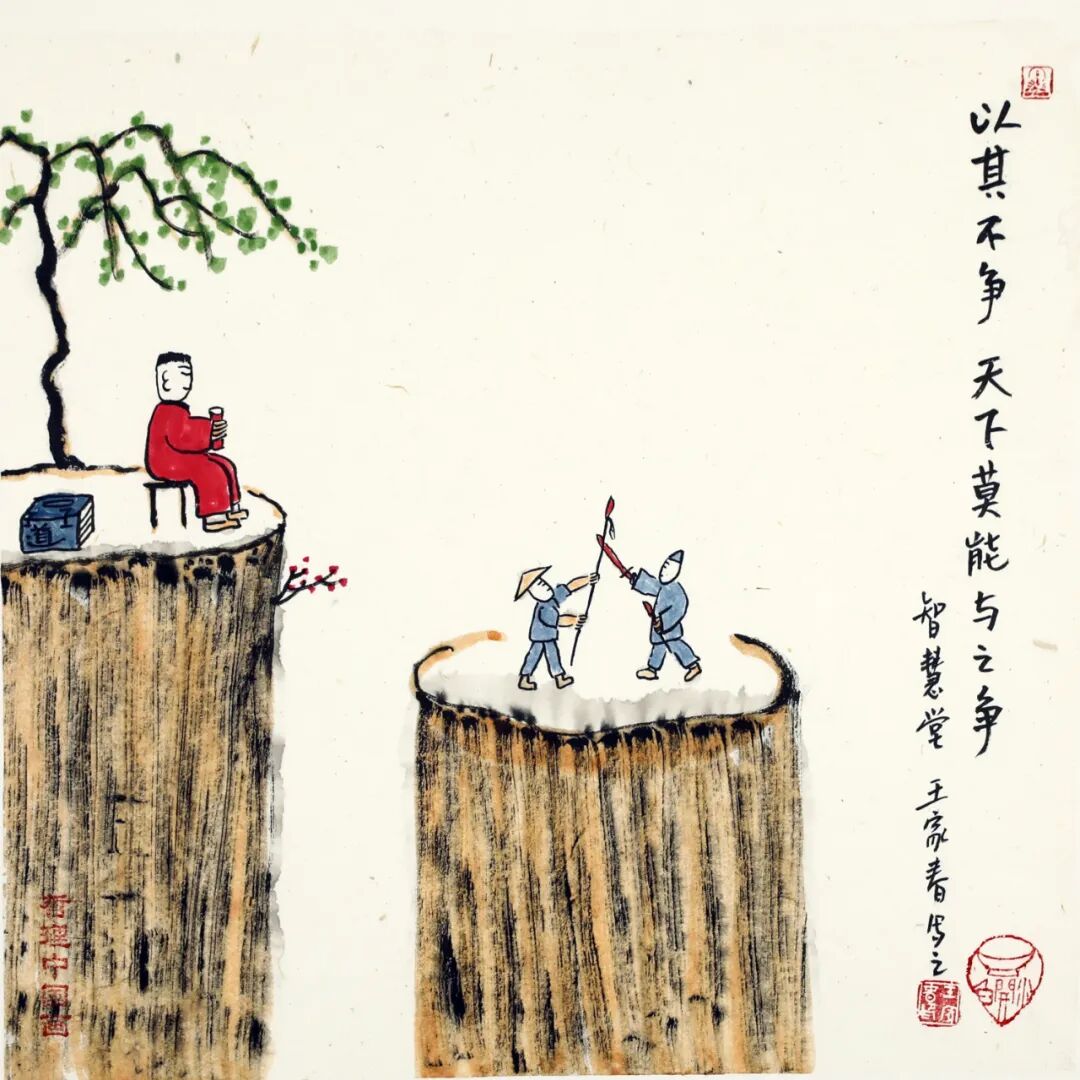 以其不争 天下莫能与之争
智慧堂 王家春写之
道
哲理中国画